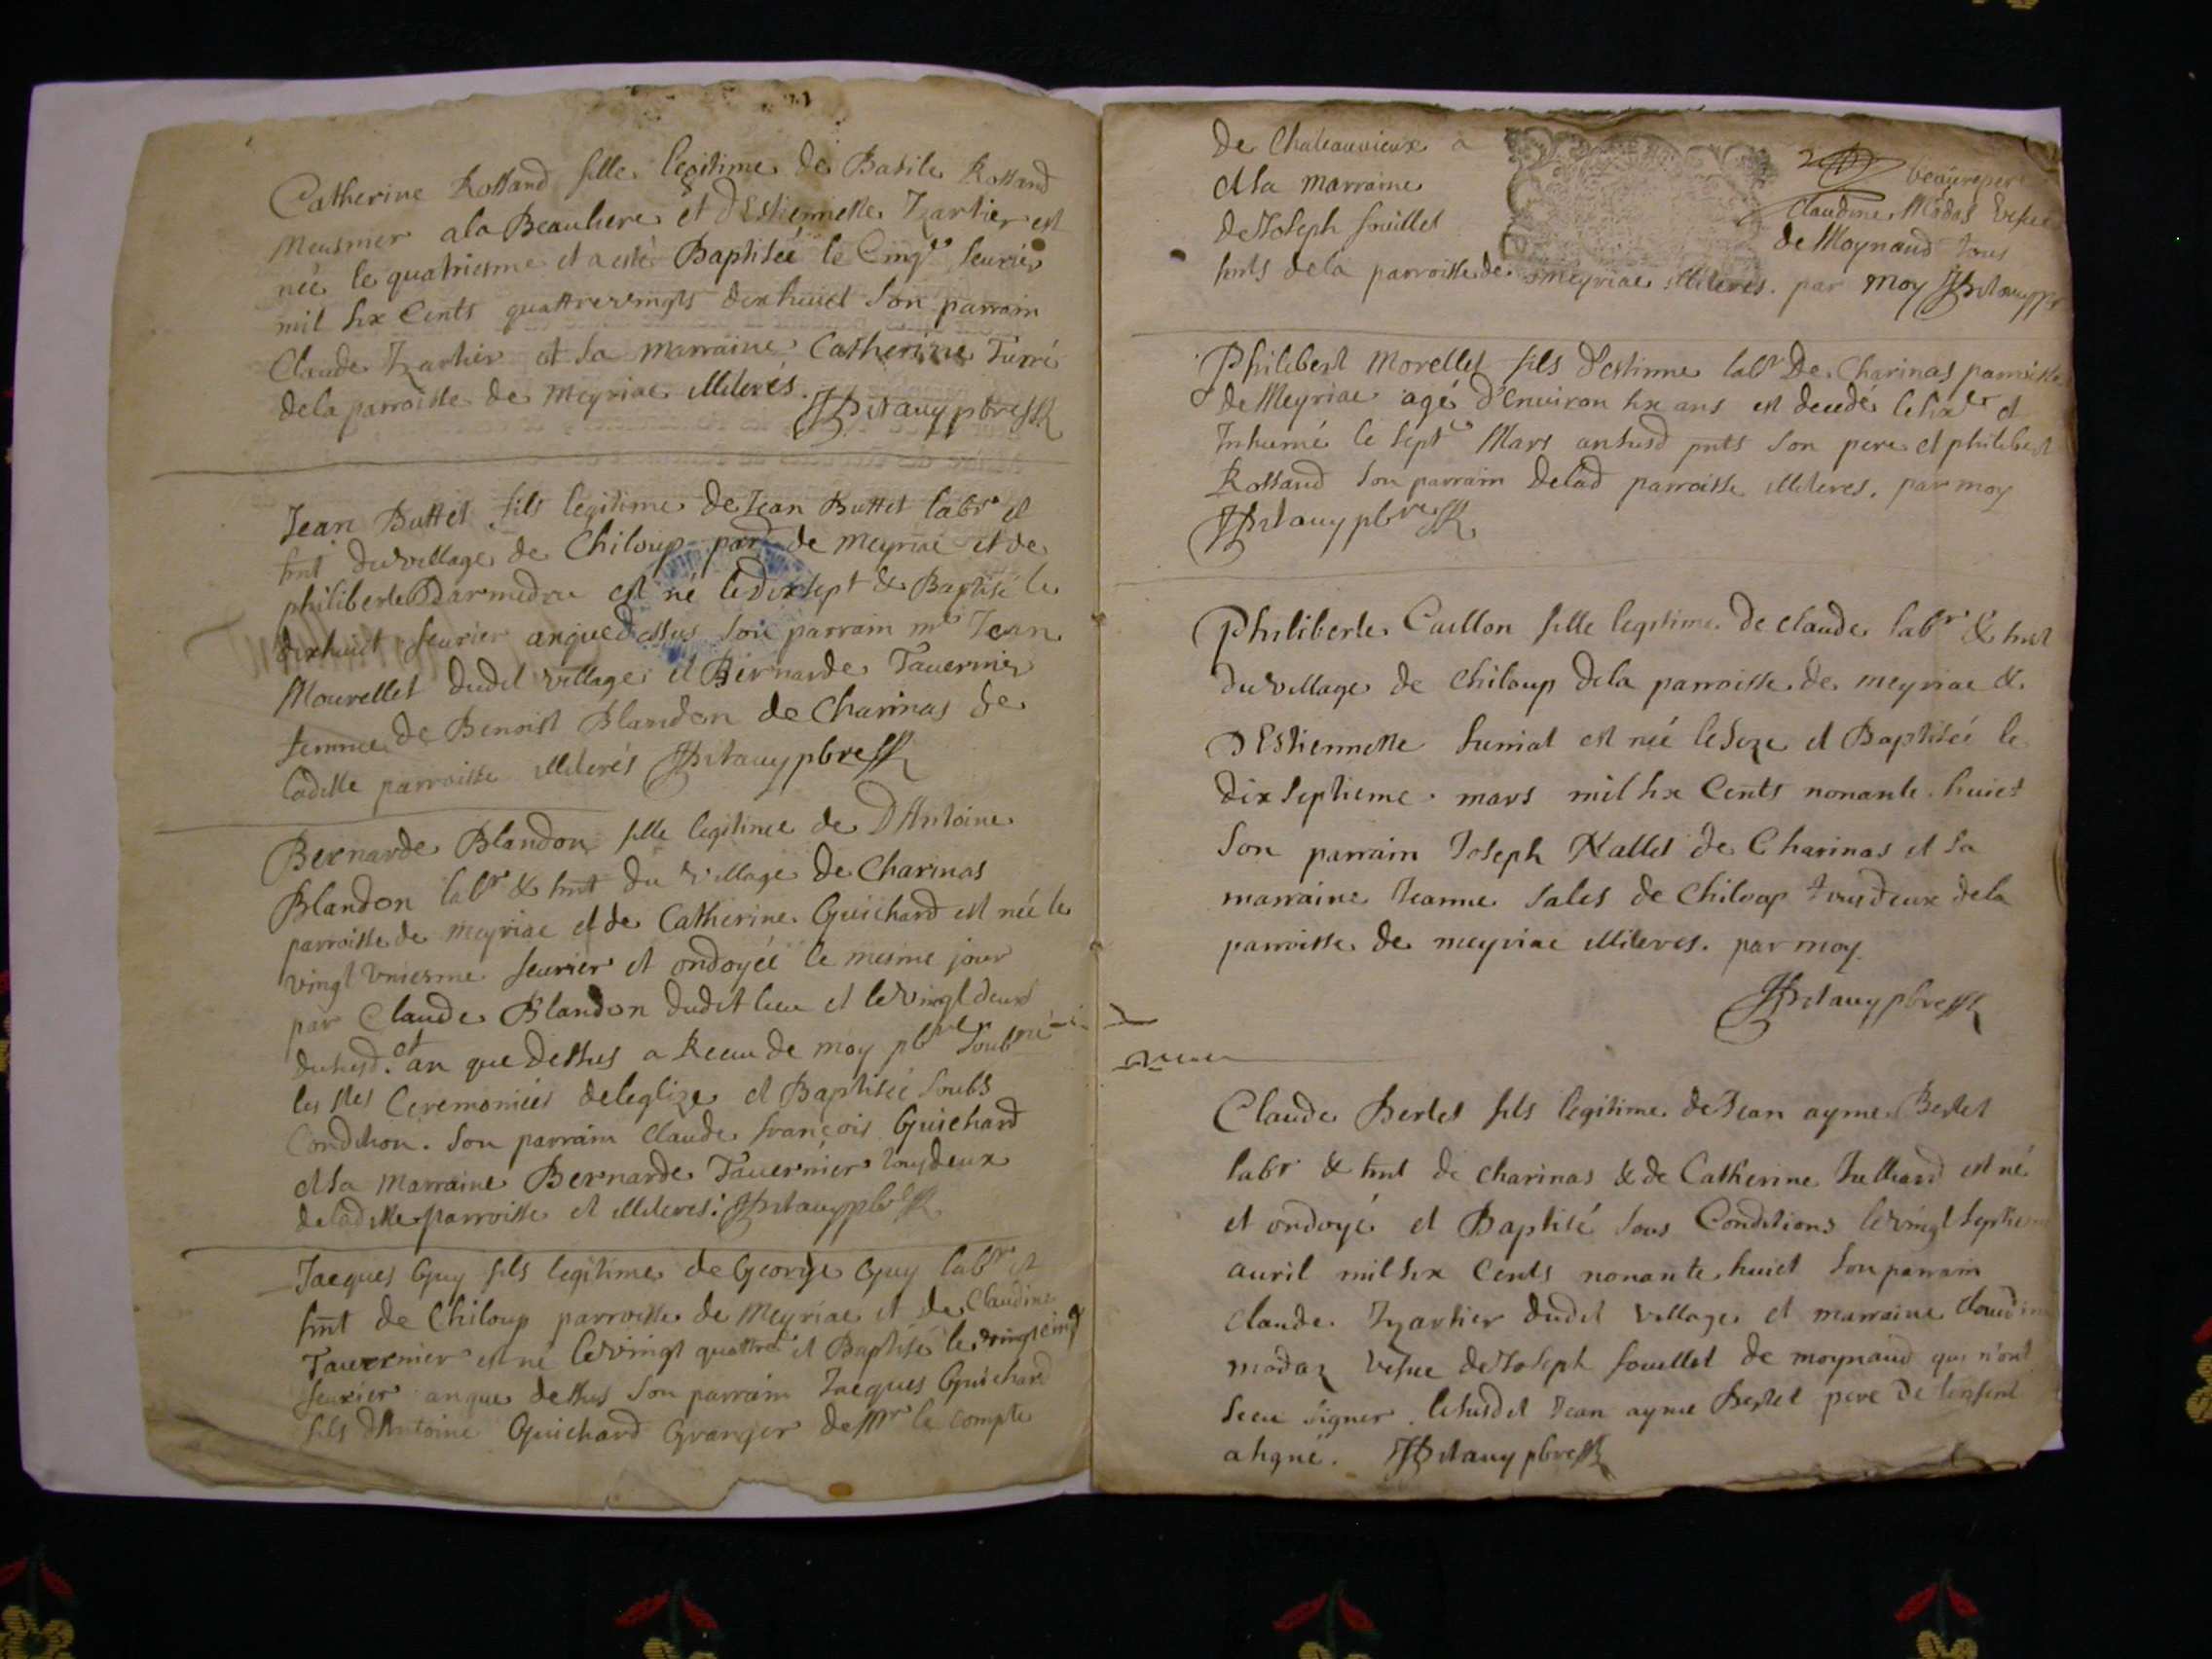 Catherine Rolland fille legitime de Basile Rolland
Meusnier a la Beauliere et d'Estiennette Tzartier est
née le quatriesme et a esté Baptisée le Cinq.e feurier
mil six Cents quattrevingts dixhuict son parrain
Claude Tzartier et sa marraine Catherine
dela parroisse de meyriac illiterés. pbre
Jean Buttet fils legitime de Jean Buttet labr et
hnt du village de Chiloup par. de meyriac et de
philiberte est né le dixsept & Baptisé le
dixhuict feurier an que dessus son parrain Jean
Mourellet dudit village et Bernarde Tauernier
femme de Benoist Blandon de Charinas de
laditte parroisse illiterés pbre
Bernarde Blandon fille legitime de D'Antoine
Blandon labr & hnt du village de Charinas
parroisse de meyriac et de Catherine Guichard est née le
vingt vniesme feurier et ondoyée le mesme jour
par Claude Blandon dudit lieu et le vingt deux
dususd. et an que dessus a Receu de moy pbre soubné
les stes Ceremonies de leglize et Baptisée soubs
Condition. son parrain Claude françois Guichard
et sa marraine Bernarde Tauernier tous deux
de laditte parroisse et illiteres. pbre
Jacques Guy fils legitime de George Guy labr et
hnt de Chiloup parroisse de Meyriac et de Claudine
Tauernier est né le vingt quattre et Baptisé le vingt cinq
feurier an que dessus son parrain Jacques Guichard
fils d'Antoine Guichard Granger de Mr le Compte
de Chateauvieux a beaurepere
et sa marraine Claudine Madas vefue
de Joseph fouillet de Moynaud tous
hnts de la parroisse de meyriac illiterés. par moy
Philibert Morellet fils d'estienne labr De Charinas parroisse
de Meyriac agé d'enuiron six ans est decedé le six et
Inhumé le sept.e Mars an susd pnts son pere et philibert
Rolland son parrain de lad parroisse illiteres. par moy
pbre
Philiberte Caillon fille legitime de claude labr & hnt
du village de Chiloup de la parroisse de meyriac &
D'Estiennette est née le seze et Baptisée le
dix septieme mars mil six Cents nonante huict
son parrain Joseph de Charinas et sa
marraine Jeanne sales de Chiloup tous deux de la
parroisse de meyriac illiteres. par moy
pbre
Claude Bertet fils legitime de Jean ayme Bertet
labr & hnt de charinas & de Catherine Julliard est né
et ondoyé et Baptisé sous Conditions le vingt septiem
auril mil six Cents nonante huict son parrain
claude Tzartier dudit village et marraine claudine
madaz vefue de Joseph fouillet de moynaud qui n'ont
sceu signer. le susdit Jean ayme Bertet pere de l'enfent
a signé. pbre